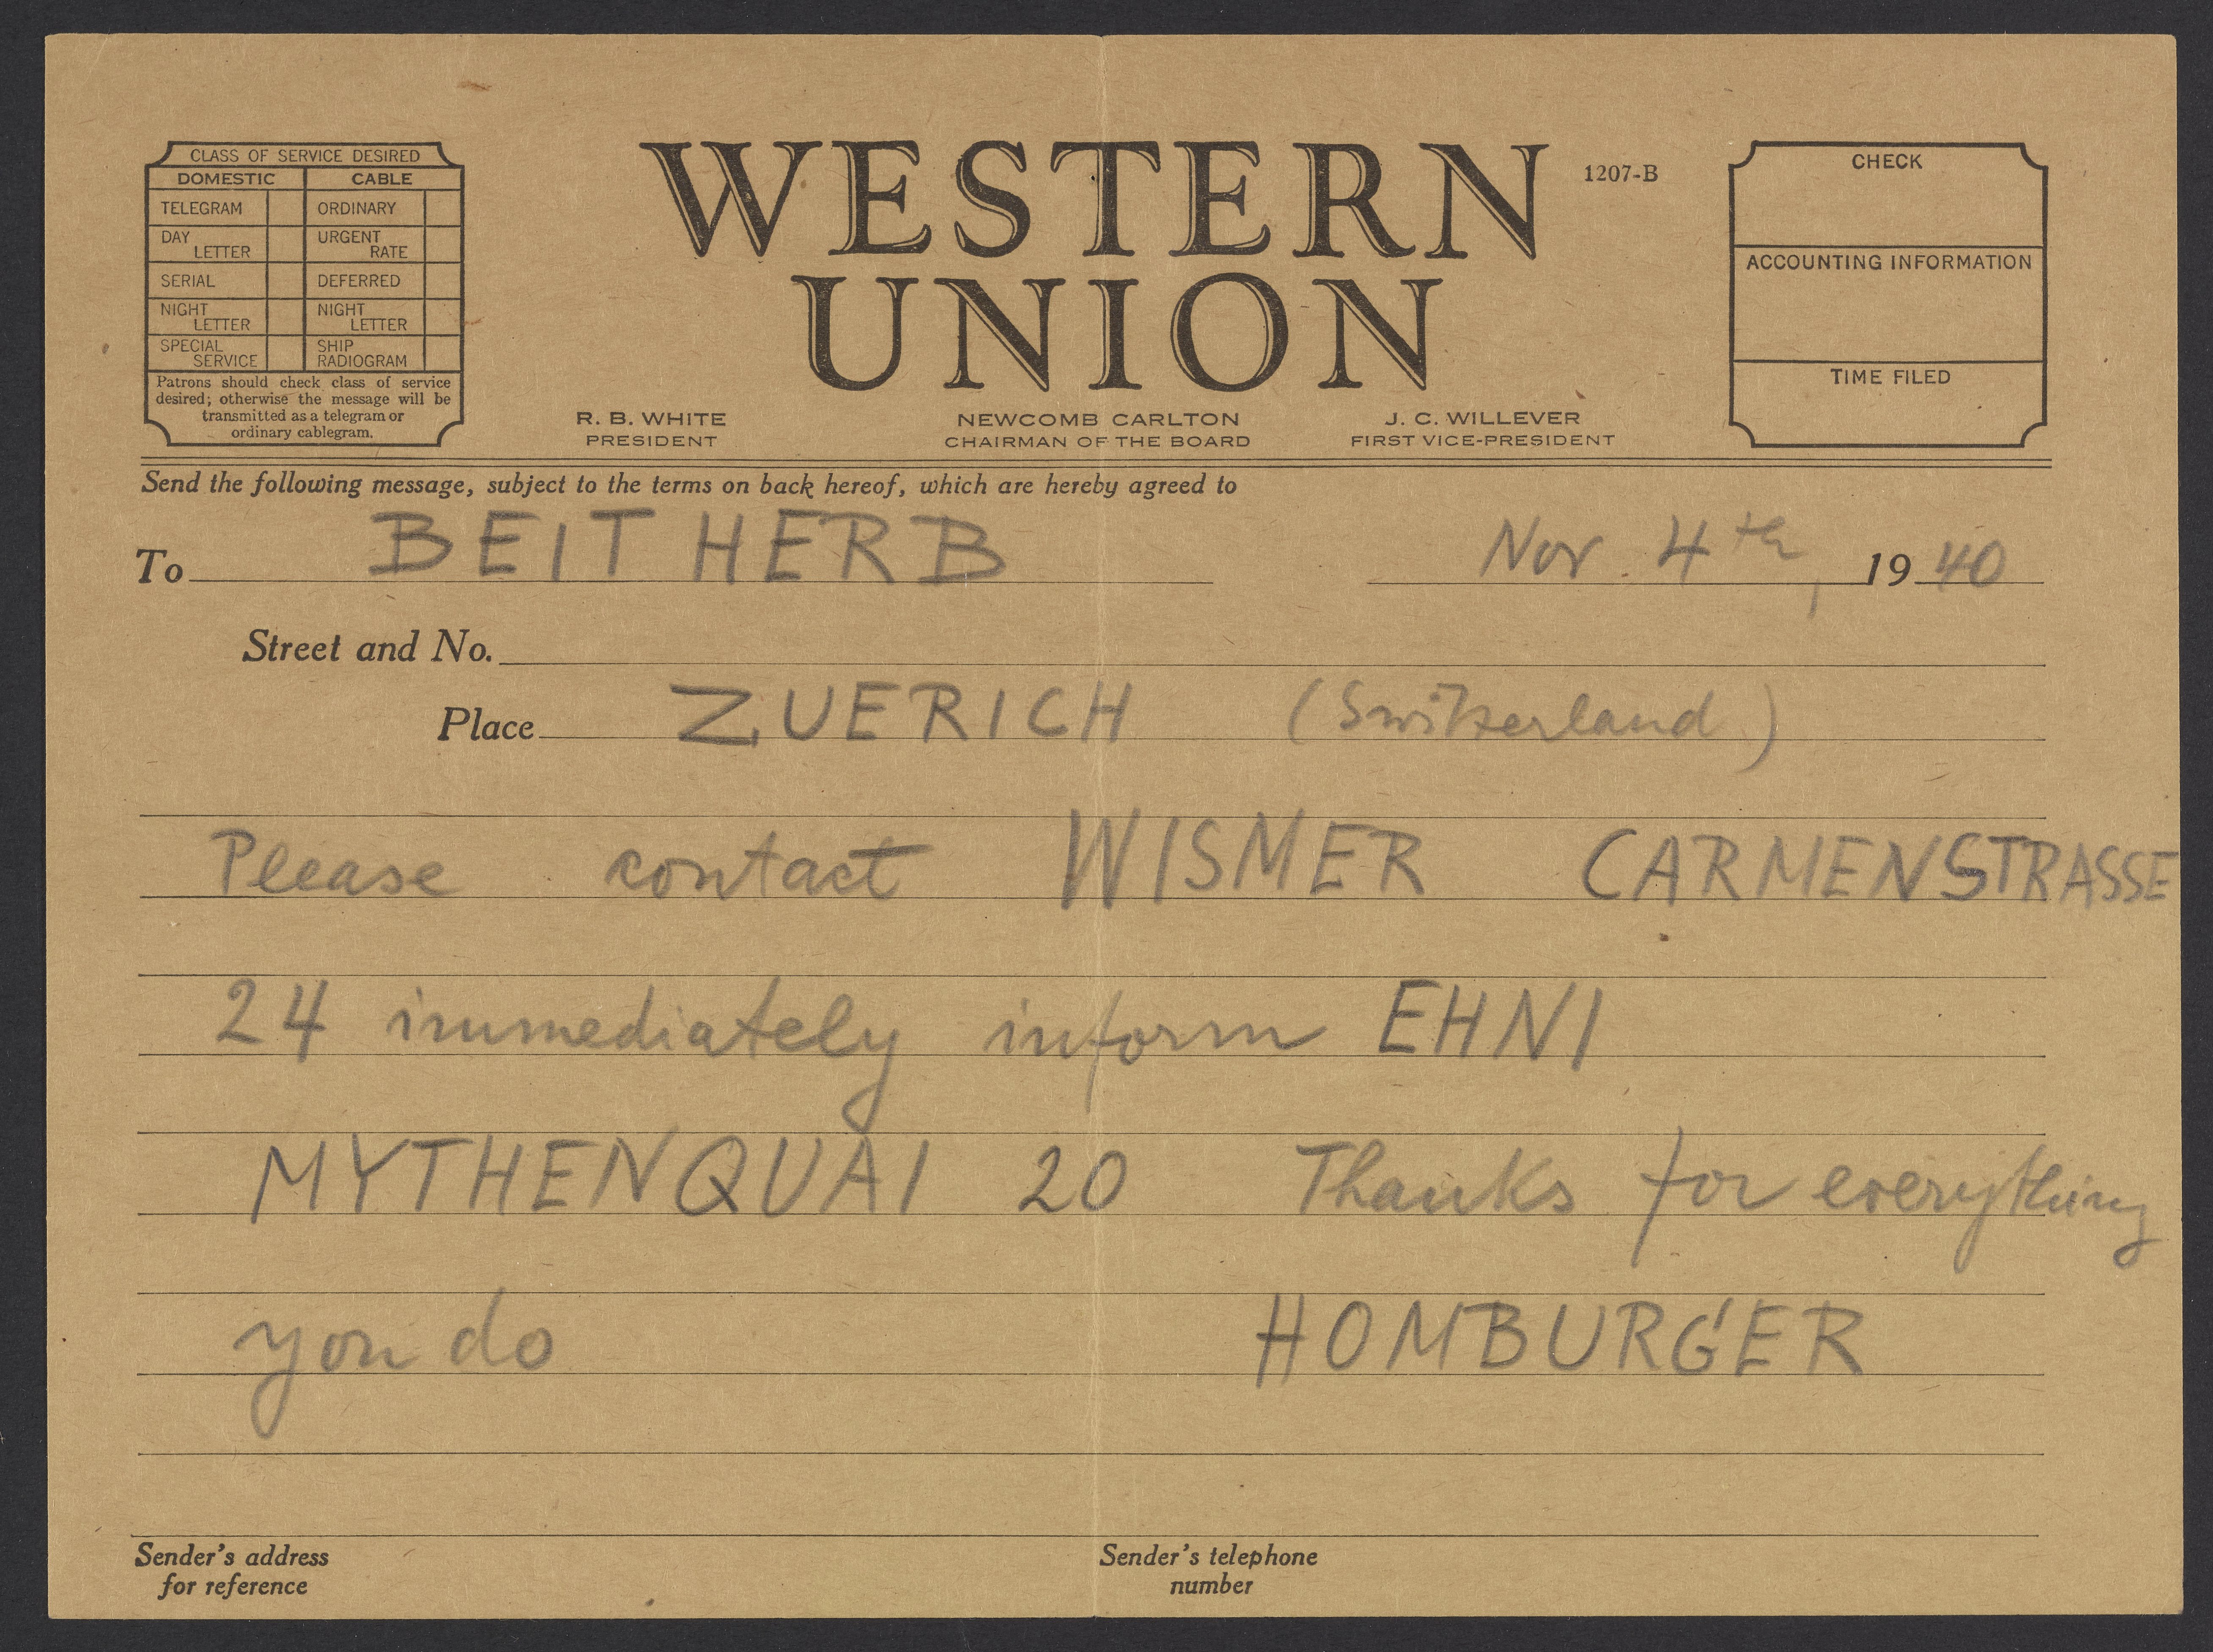 CLASS OF SERVICE DESIRED
DOMESTIC CABLE
TELEGRAM ORDINARY
DAY LETTER URGENT RATE
SERIAL DEFERRED
NIGHT LETTER NIGHT LETTER
SPECIAL SERVICE SHIP RADIOGRAM
Patrons should check class of service
desired; otherwise the message will be
transmitted as a telegram or
ordinary cablegram.
WESTERN
UNION
1207-B
R. B. WHITE
PRESIDENT
NEWCOMB CARLTON
CHAIRMAN OF THE BOARD
J. C. WILLEVER
FIRST VICE-PRESIDENT
CHECK
ACCOUNTING INFORMATION
TIME FILED
Send the following message, subject to the terms on back hereof, which are hereby agreed to
To BEITHERB Nov. 4th, 1940
Street and No.
Place ZUERICH (Switzerland)
Please contact WISMER CARMENSTRASSE
24 immediately inform EHNI
MYTHENQUAI 20 Thanks for everything
you do HOMBURGER
Sender's address
for reference
Sender's telephone
number